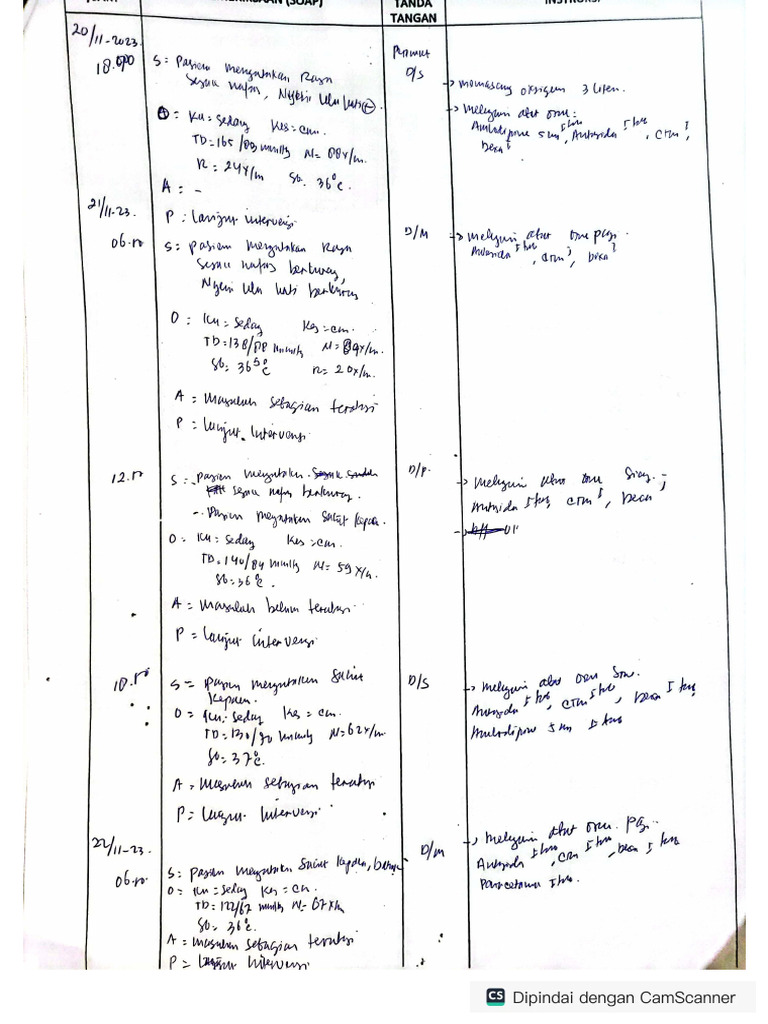 (SOAP)
TANDA
TANGAN
INSTRUKSI
20/11-2023.
18.00
S: pasien mengatakan Rasa
Sesak napas, Nyeri ulu hati (+)
O = Ku = sedang Kes = cm.
TD = 165/83 mmHg N = 88x/m.
R = 24x/m Sb. 36°c.
A : -
P : Lanjut intervensi
Perawat
D/S
-> memasang oksigen 3 liter.
-> melayani obat oral :
Amlodipone 5 , Antasida , CTM
21/11-23.
06.00
S : pasien mengatakan Rasa
Sesak napas berkurang,
Nyeri ulu hati berkurang
O : Ku = sedang Kes = cm.
TD = 138/88 mmHg N = 89x/m.
Sb. 36 5°c R = 20x/m.
A = Masalah sebagian teratasi
P = Lanjut intervensi
D/M
-> melayani obat oral pagi.
Antasida , CTM
12.00
S : - pasien mengatakan
sesak napas berkurang.
- Pasien mengatakan Sakit kepala.
O = Ku : sedang Kes = cm.
TD = 140/84 mmHg N = 59x/m.
Sb = 36°c.
A = Masalah belum teratasi
P = Lanjut intervensi
D/P.
-> melayani obat oral Siang.
Antasida , CTM
18.00
S = pasien mengatakan Sakit
Kepala.
O = Ku : sedang Kes = cm.
TD = 130/90 mmHg N = 62x/m.
Sb. = 37°c.
A = Masalah sebagian teratasi
P = Lanjut intervensi
D/S
-> melayani obat oral Sore.
Antasida , CTM
Amlodipone 5
22/11-23.
06.00
S : pasien mengatakan Sakit kepala,
O = Ku = sedang Kes = cm.
TD = 122/67 mmHg N = 67x/m
Sb = 36°c.
A = Masalah sebagian teratasi
P = Lanjut intervensi
D/M
-> melayani obat oral pagi.
Antasida , CTM
Paracetamol
CS Dipindai dengan CamScanner